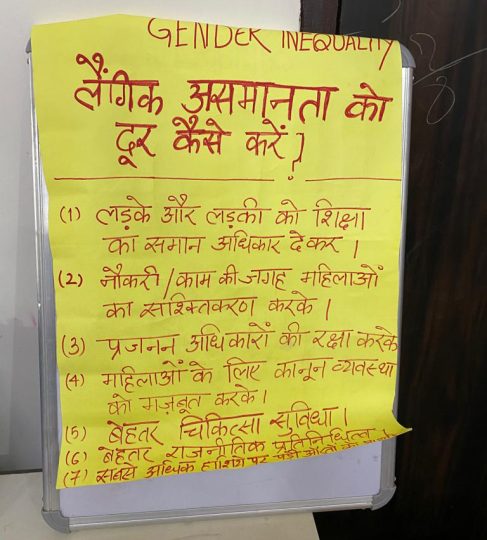 GENDER INEQUALITY
लैंगिक असमानता को
दूर कैसे करें ?
(1) लड़के और लड़की को शिक्षा
का समान अधिकार देकर |
(2) नौकरी / काम की जगह महिलाओं
का साश्क्तिकरण करके |
(3) प्रजनन अधिकारों की रक्षा करके
(4) महिलाओं के लिए कानून व्यवस्था
को मज़बूत करके |
(5) बेहतर चिकित्सा सुविधा |
(6) बेहतर राजनीतिक प्रतिनिधित्व |
(7) सबसे अधिक हाशिए पर